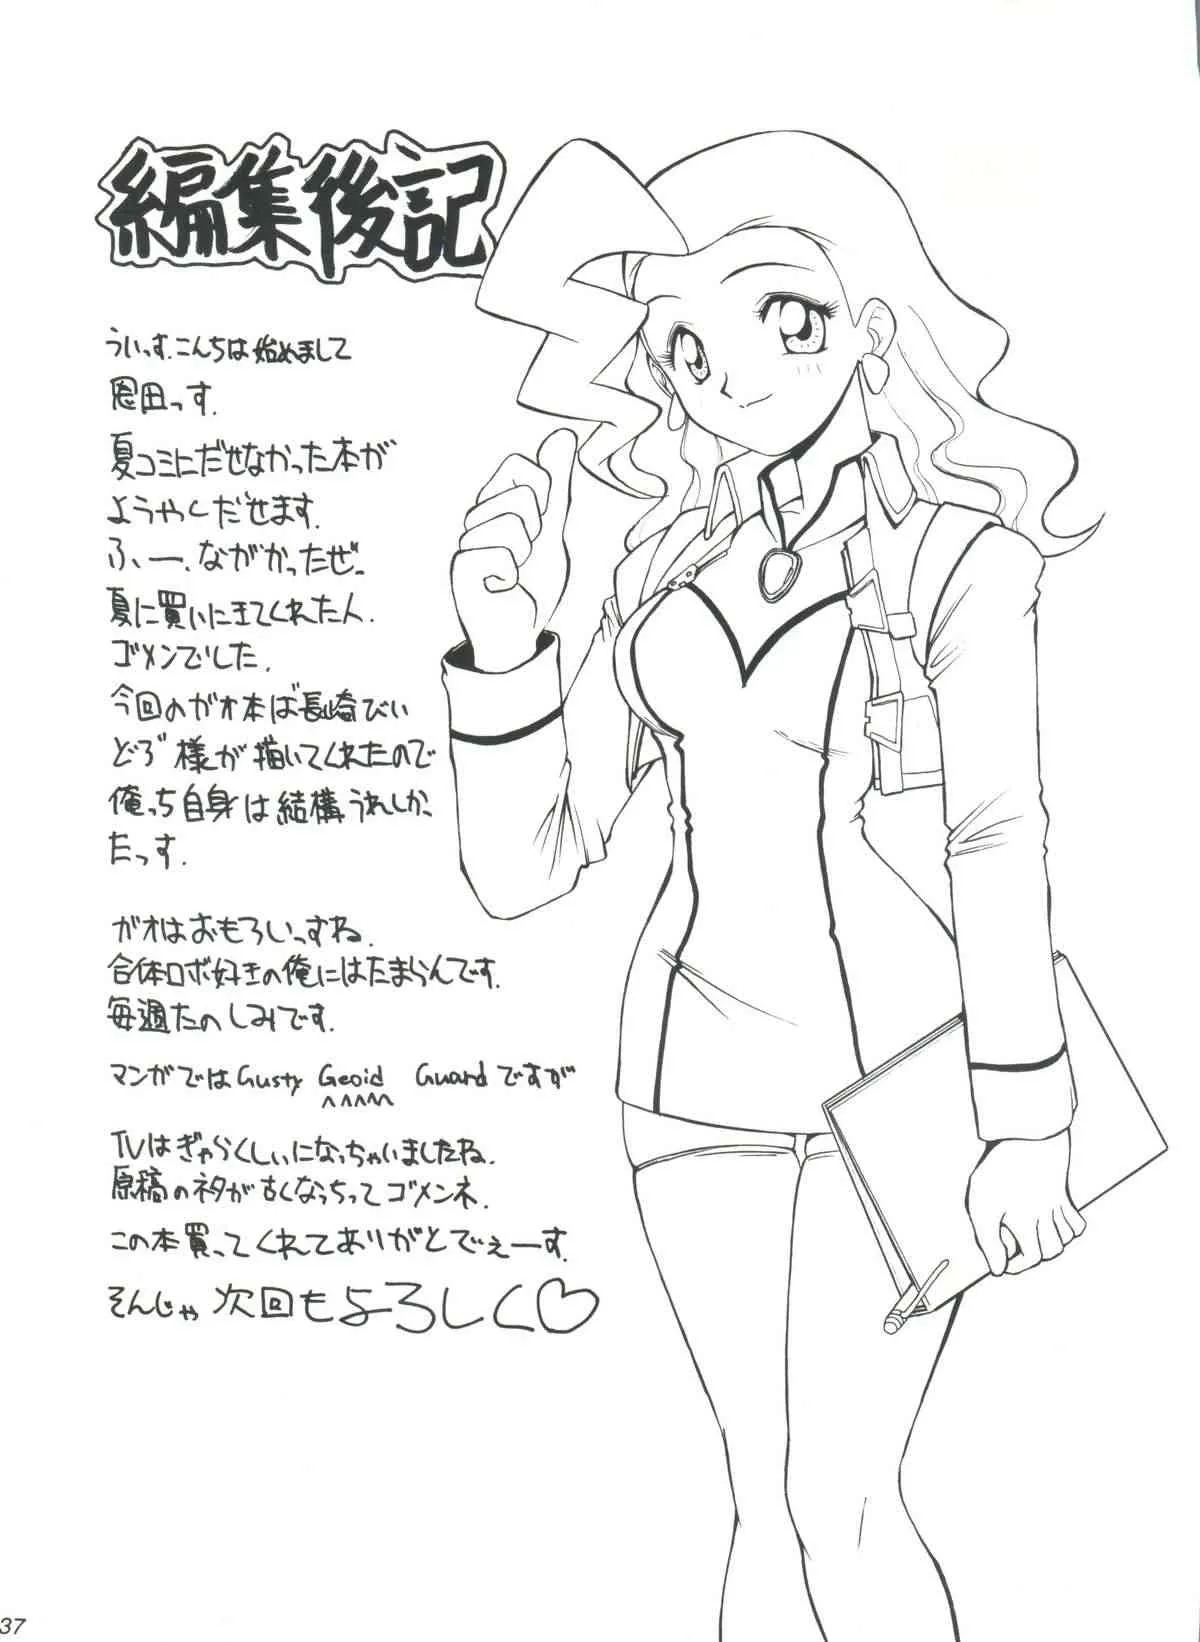 編集後記
ういっす.こんちは始めまして
恩田っす.
夏コミにだせなかった本が
ようやくだせます.
ふぃー.ながかったぜ.
夏に買いにきてくれた人.
ゴメンでした.
今回のガオ本は長崎びい
どろ様が描いてくれたので
俺っち自身は結構うれしか
たっす.
ガオはおもろいっすね.
合体ロボ好きの俺にはたまらんです.
毎週たのしみです.
マンガではGusty Geoid Guardですが
TVはぎゃらくしぃになっちゃいましたね.
原稿のネタが古くなっちってゴメンネ.
この本買ってくれてありがとでぇーす.
そんじゃ次回もよろしく♡
37